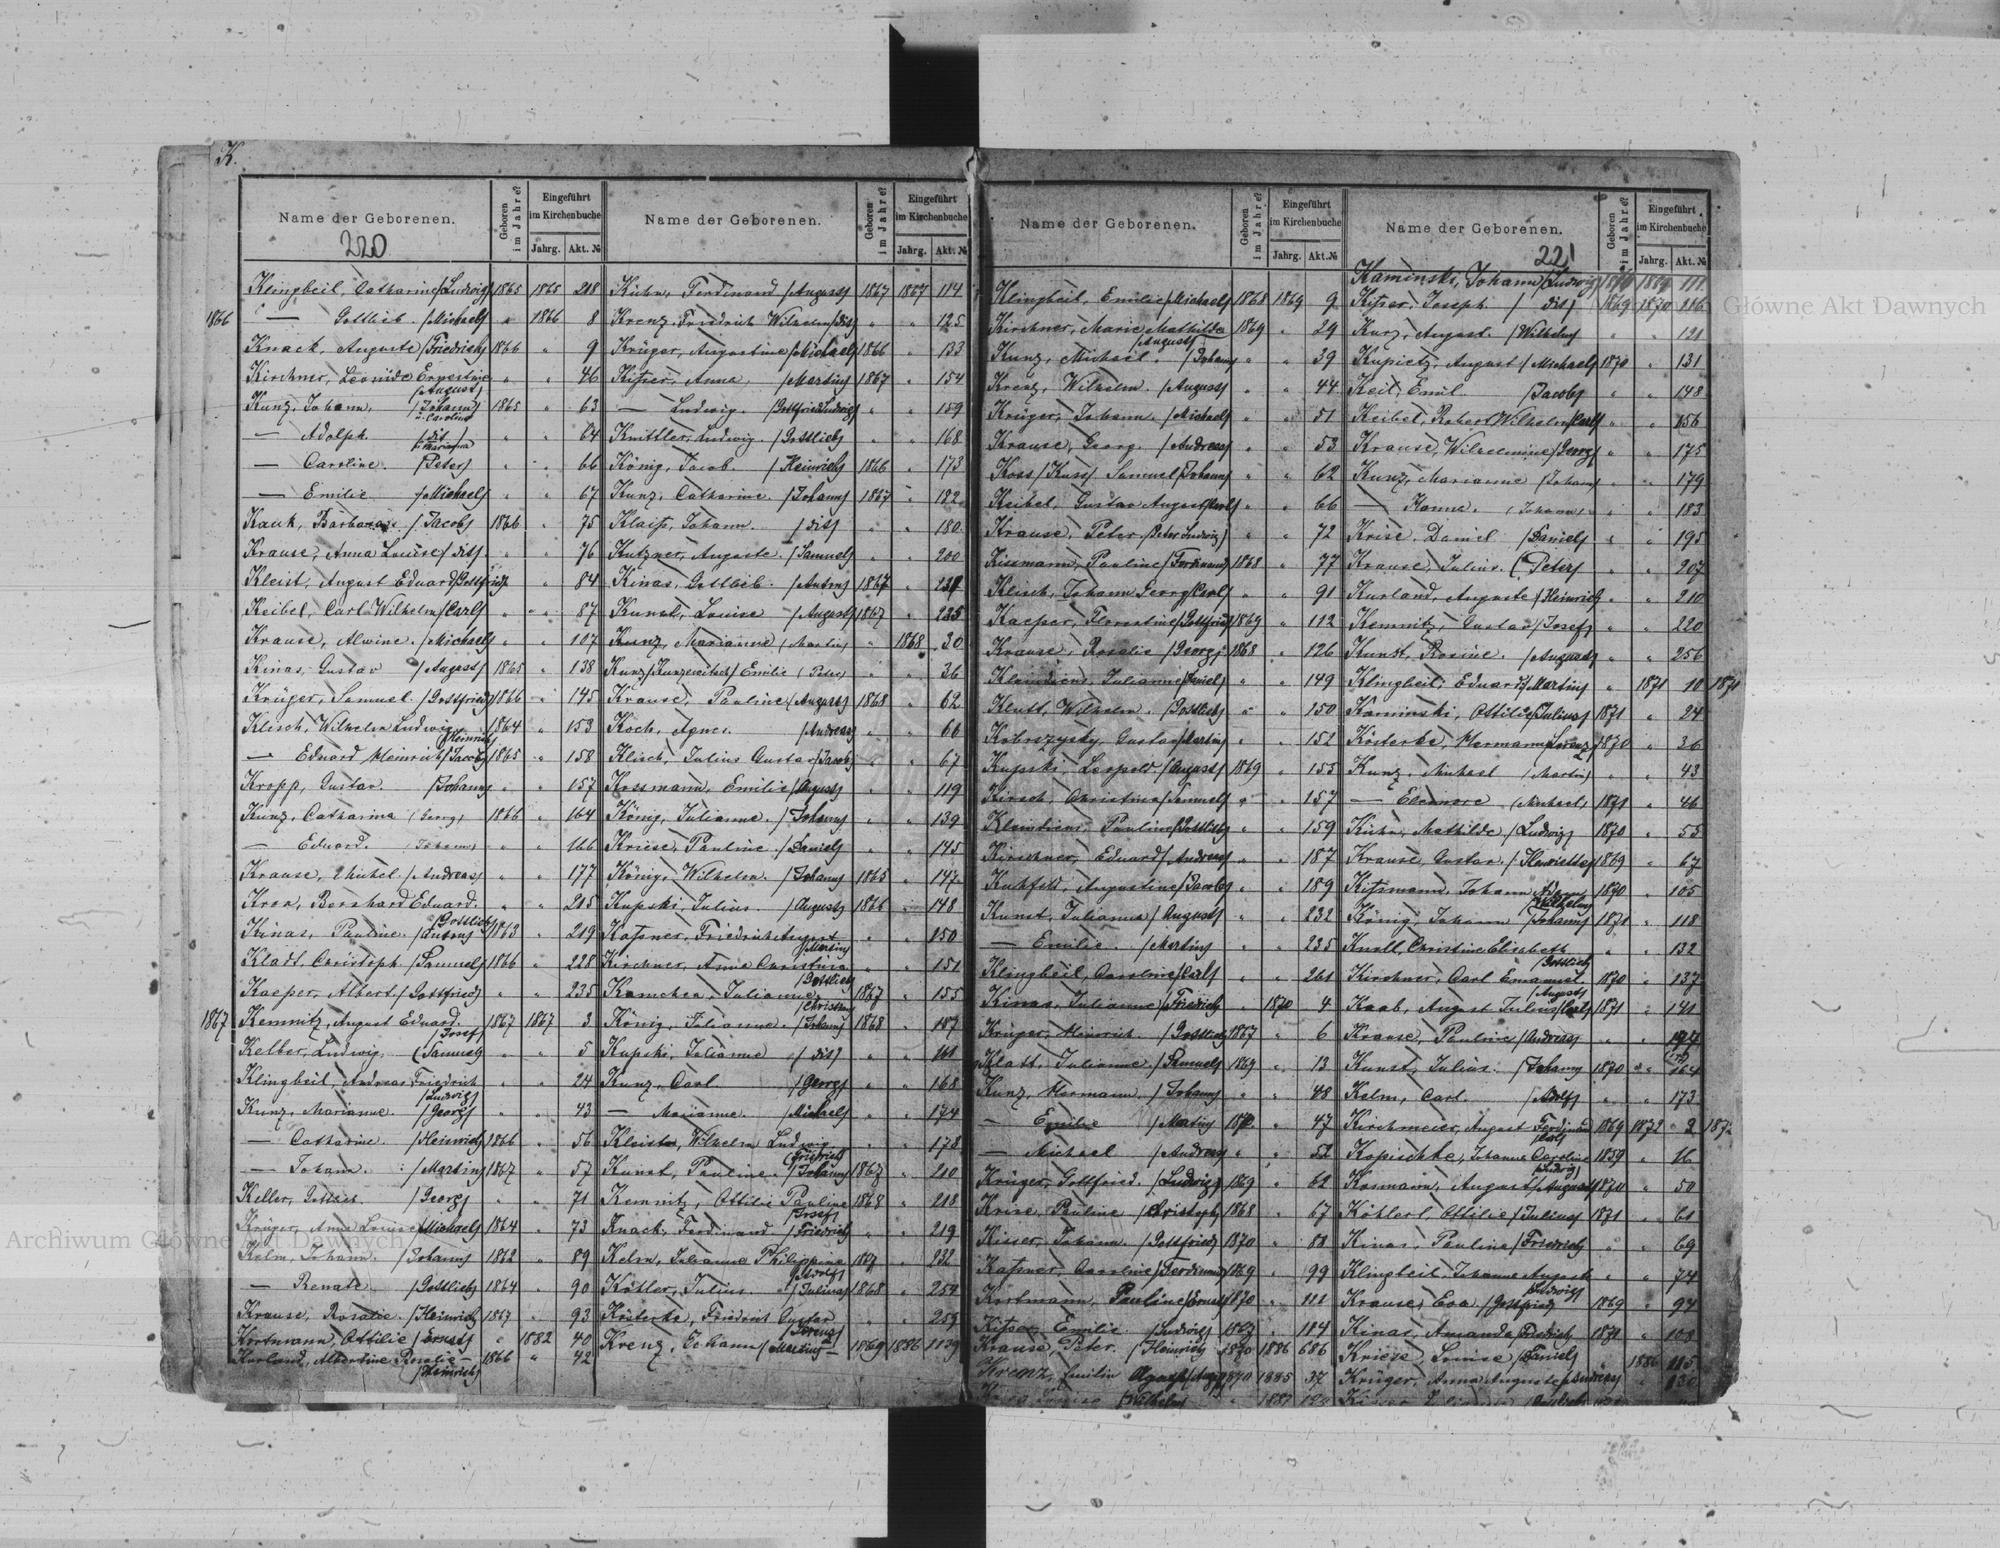 K.
Name der Geborenen.
220
Geboren im Jahre?
Eingeführt im Kirchenbuche
Jahrg. Akt. №
Klingbeil, Catharine /Ludwig/ 1865 1865 218
1866 — Gottlieb /Michael/ " 1866 8
Knack, Auguste /Friedrich/ 1866 " 9
Kirchner, Leonide Ernestine /August/ " " 46
Kunz, Johann, /Johann u. Caroline/ 1865 " 63
— Adolph. /dit Mariana/ " " 64
— Caroline. /Peter/ " " 66
— Emilie /Michael/ " " 67
Kauk, Barbara /Jacob/ 1866 " 75
Krause, Anna Louise /dit/ " " 76
Kleist, August Eduard /Gottfried/ " " 84
Keibel, Carl Wilhelm /Carl/ " " 87
Krause, Alwine. /Michael/ " " 107
Kinas, Gustav /August/ 1865 " 138
Krüger, Samuel /Gottfried/ 1866 " 145
Klisch, Wilhelm Ludwig /Heinrich/ 1864 " 153
— Eduard Heinrich /Jacob/ 1865 " 158
Kropp, Gustav. /Johann/ " " 157
Kunz, Catharina (Georg) 1866 " 164
— Eduard. (Johann) " " 166
Krause, Michel /Andreas/ " " 177
Bernhard Eduard. /Gottlieb/ " " 215
Kinas, Pauline. 1863 " 219
Kladt, Christoph /Samuel/ 1866 " 228
Kaeper, Albert /Gottfried/ " " 235
1867 Kemnitz, August Eduard. /Josef/ 1867 1867 3
Kelber, Ludwig. /Samuel/ " " 5
Klingbeil, Andreas Friedrich /Ludwig/ " " 24
Kunz, Marianne. /Georg/ " " 43
— Catharine /Heinrich/ 1866 " 56
— Johann. /Martin/ 1867 " 57
Keller, Gottlieb. /Georg/ " " 71
Krüger, Anna Louise /Michael/ 1864 " 73
Kelm, Johann. /Johann/ 1862 " 89
— Renate /Gottlieb/ 1864 " 90
Krause, Rosalie. /Heinrich/ 1867 " 93
Kortmann, Ottilie /Ernst/ " 1882 40
Kurland, Albertine Rosalie /Heinrich/ 1866 " 42
Name der Geborenen.
Geboren im Jahre?
Eingeführt im Kirchenbuche
Jahrg. Akt. №
Kühn, Ferdinand /August/ 1867 1867 114
Krenz, Friedrich Wilhelm /dit/ " " 125
Krüger, Augustine /Michael/ 1866 " 133
Kitzer, Anna, /Martin/ 1867 " 154
— Ludwig. /Gottfried Ludwig/ " " 159
Knittler, Ludwig. /Gottlieb/ " " 168
König, Jacob. /Heinrich/ 1866 " 173
Kunz, Catharine. /Johann/ 1867 " 182
Johann. /dit/ " " 180
Kutzner, Auguste. /Samuel/ " " 200
Kinas, Gottlieb. 1867 "
Kunst, Louise /August/ 1867 " 225
Kunz, Marianne (Martin) " 1868 20
Kunz /Kunzewitsch/ Emilie (Peter) " " 36
Krause, Pauline /August/ 1868 " 62
Koch, Agnes. /Andreas/ " " 66
Klisch, Julius Gustav /Jacob/ " " 67
Kossmann, Emilie /August/ " " 119
König, Julianne. /Johann/ " " 139
Kriese, Pauline. /Daniel/ " " 145
König, Wilhelm. /Johann/ 1865 " 147
Kupski, Julius. /August/ 1866 " 148
Katzner, Friedrich August /Martin/ " " 150
Kirchner, Anna Christina /Gottlieb/ " " 151
Julianne /Christian/ 1867 " 155
König, Julianne. /Johann/ 1868 " 157
Kupski, Julianne /dit/ " " 161
Kunz, Carl /Georg/ " " 168
— Marianne. /Michael/ " " 174
Kleist, Wilhelm Ludwig /Friedrich/ " " 178
Kunst, Pauline. /Johann/ 1867 " 210
Kemnitz, Ottilie Pauline /Josef/ 1868 " 218
Knack, Ferdinand /Friedrich/ " " 219
Kelm, Julianne Philippine /Adolf/ 1867 " 232
Köhler, Julius. /Julius/ 1868 " 254
Kösterke, Friedrich Gustav /Lorenz/ " " 259
Krenz, Johann /Martin/ 1869 1886 1139
Name der Geborenen.
Geboren im Jahre?
Eingeführt im Kirchenbuche
Jahrg. Akt. №
Klingbeil, Emilie /Michael/ 1868 1869 9
Kirchner, Marie Mathilde /August/ 1869 " 29
Kunz, Michael. /Johann/ " " 39
Krenz, Wilhelm. /August/ " " 44
Krüger, Johann. /Michael/ " " 51
Krause, Georg. /Andreas/ " " 53
Koss /Kuss/ Samuel /Johann/ " " 62
Keibel, Gustav August /Carl/ " " 66
Krause, Peter (Peter Ludwig) " " 72
Kissmann, Pauline /Ferdinand/ 1868 " 77
Klisch, Johann Georg /Carl/ " " 91
Kaeper, Florentine /Gottfried/ 1869 " 112
Krause, Rosalie /Georg/ 1868 " 126
Kleindienst, Julianne /Daniel/ " " 149
Klutt, Wilhelm. /Gottlieb/ " " 150
Kobrzysky, Gustav /Martin/ " " 152
Kupski, Leopold /August/ 1869 " 155
Kirsch, Christina /Samuel/ " " 157
Kleindienst, Pauline /Gottlieb/ " " 159
Kirschner, Eduard /Andreas/ " " 187
Kuhfeld, Augustine /Jacob/ " " 189
Kunst, Julianna /August/ " " 232
— Emilie. /Martin/ " " 235
Klingbeil, Caroline /Carl/ " " 261
Kinas, Julianne /Friedrich/ " 1870 4
Krüger, Heinrich. /Gottlieb/ 1867 " 6
Klatt, Julianne. /Samuel/ 1869 " 13
Kunz, Hermann. /Johann/ " " 48
— Emilie /Martin/ 1870 " 47
— Michael /Andreas/ " " 52
Krüger, Gottfried. /Ludwig/ 1869 " 62
Krise, Pauline /Christoph/ 1868 " 67
Kisser, Johann. /Gottfried/ 1870 " 88
Katzner, Caroline /Ferdinand/ 1869 " 99
Kortmann, Pauline /Ernst/ 1870 " 111
Kitzer, Emilie. /Ludwig/ 1867 " 114
Krause, Peter. /Heinrich/ 1870 1886 686
Krenz, Emilie /August/ 1870 1885 37
Louise /Wilhelm/ " 1887
Name der Geborenen.
221
Geboren im Jahre?
Eingeführt im Kirchenbuche
Jahrg. Akt. №
Kaminski, Johann /Ludwig/ 1869 111
Kitzer, Joseph /dit/ 1869 1870 116
Kurz, August. /Wilhelm/ " " 121
Kupietz, August /Michael/ 1870 " 131
Keil, Emil. /Jacob/ " " 148
Keibel, Robert Wilhelm /Carl/ " " 156
Krause, Wilhelmine /Georg/ " " 175
Kunz, Marianne /Johann/ " " 179
— Hanna. (Johann) " " 183
Krise, Daniel /Daniel/ " " 195
Krause, Julius. /Peter/ " " 207
Kurland, Auguste /Heinrich/ " " 210
Kemnitz, Gustav /Josef/ " " 220
Kunst, Rosine. /August/ " " 256
Klingbeil, Eduard /Martin/ " 1871 10 1871
Kaminski, Ottilie /Julius/ 1871 " 24
Kösterke, Hermann /Lorenz/ 1870 " 36
Kunz, Michael (Martin) " " 43
— Eleanore (Michael) 1871 " 46
Kühn, Mathilde /Ludwig/ 1870 " 55
Krause, Gustav. /Henriette/ 1869 " 67
Kitzmann, Johann Adam /Wilhelm/ 1870 " 105
König, Johann /Johann/ 1871 " 118
Knoll, Christine Elisabeth /Gottlieb/ " " 132
Kirchner, Carl Emanuel. /August/ 1870 " 137
Kaab, August Julius /Carl/ 1871 " 141
Krause, Pauline /Andreas/ " "
Kunst, Julius. /Johann/ 1870 " 164
Kelm, Carl /Adolf/ " " 173
Kirchmeier, August Ferdinand /Carl/ 1869 1872 2 1872
Kopischke, Johanne Caroline /Ludwig/ 1859 " 16
Kosmann, August /August/ 1870 " 50
Köhlert, Ottilie /Julius/ 1871 " 61
Kinas, Paulina /Friedrich/ " " 69
Klingbeil, Johann August /Ludwig/ " " 74
Krause, Eva /Gottfried/ 1869 " 94
Kinas, Amanda /Friedrich/ 1871 " 108
Kriese, Louise /Daniel/ " 1886 115
Krüger, Anna Auguste /Andreas/ " " 130
Archiwum Główne Akt Dawnych
Archiwum Główne Akt Dawnych